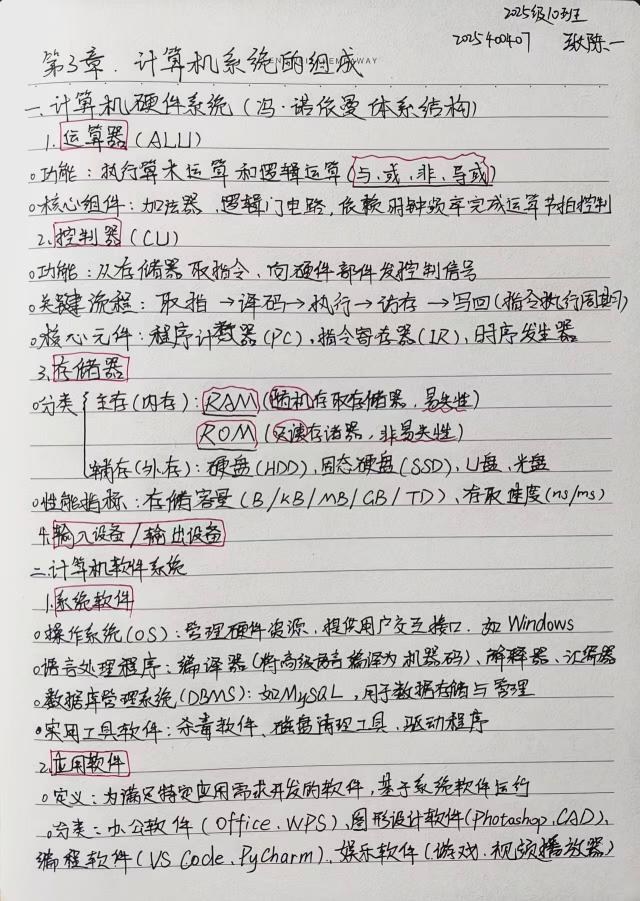 2025级10班
2025400407 张陈一
第3章.计算机系统的组成
一.计算机硬件系统(冯·诺依曼体系结构)
1.运算器(ALU)
○功能:执行算术运算和逻辑运算(与、或、非、异或)
○核心组件:加法器、逻辑门电路,依赖时钟频率完成运算节拍控制
2.控制器(CU)
○功能:从存储器取指令、向硬件部件发控制信号
○关键流程:取指→译码→执行→访存→写回(指令执行周期)
○核心元件:程序计数器(PC)、指令寄存器(IR)、时序发生器
3.存储器
○分类{主存(内存):RAM(随机存取存储器、易失性)
ROM(只读存储器、非易失性)
辅存(外存):硬盘(HDD)、固态硬盘(SSD)、U盘、光盘
○性能指标:存储容量(B/KB/MB/GB/TD)、存取速度(ns/ms)
4.输入设备/输出设备
二.计算机软件系统
1.系统软件
○操作系统(OS):管理硬件资源、提供用户交互接口.如Windows
○语言处理程序:编译器(将高级语言编译为机器码)、解释器、汇编器
○数据库管理系统(DBMS):如MySQL,用于数据存储与管理
○实用工具软件:杀毒软件、磁盘清理工具、驱动程序
2.应用软件
○定义:为满足特定应用需求开发的软件,基于系统软件运行
○分类:办公软件(Office、WPS)、图形设计软件(Photoshop、CAD)、
编程软件(VS Code、PyCharm)、娱乐软件(游戏、视频播放器)